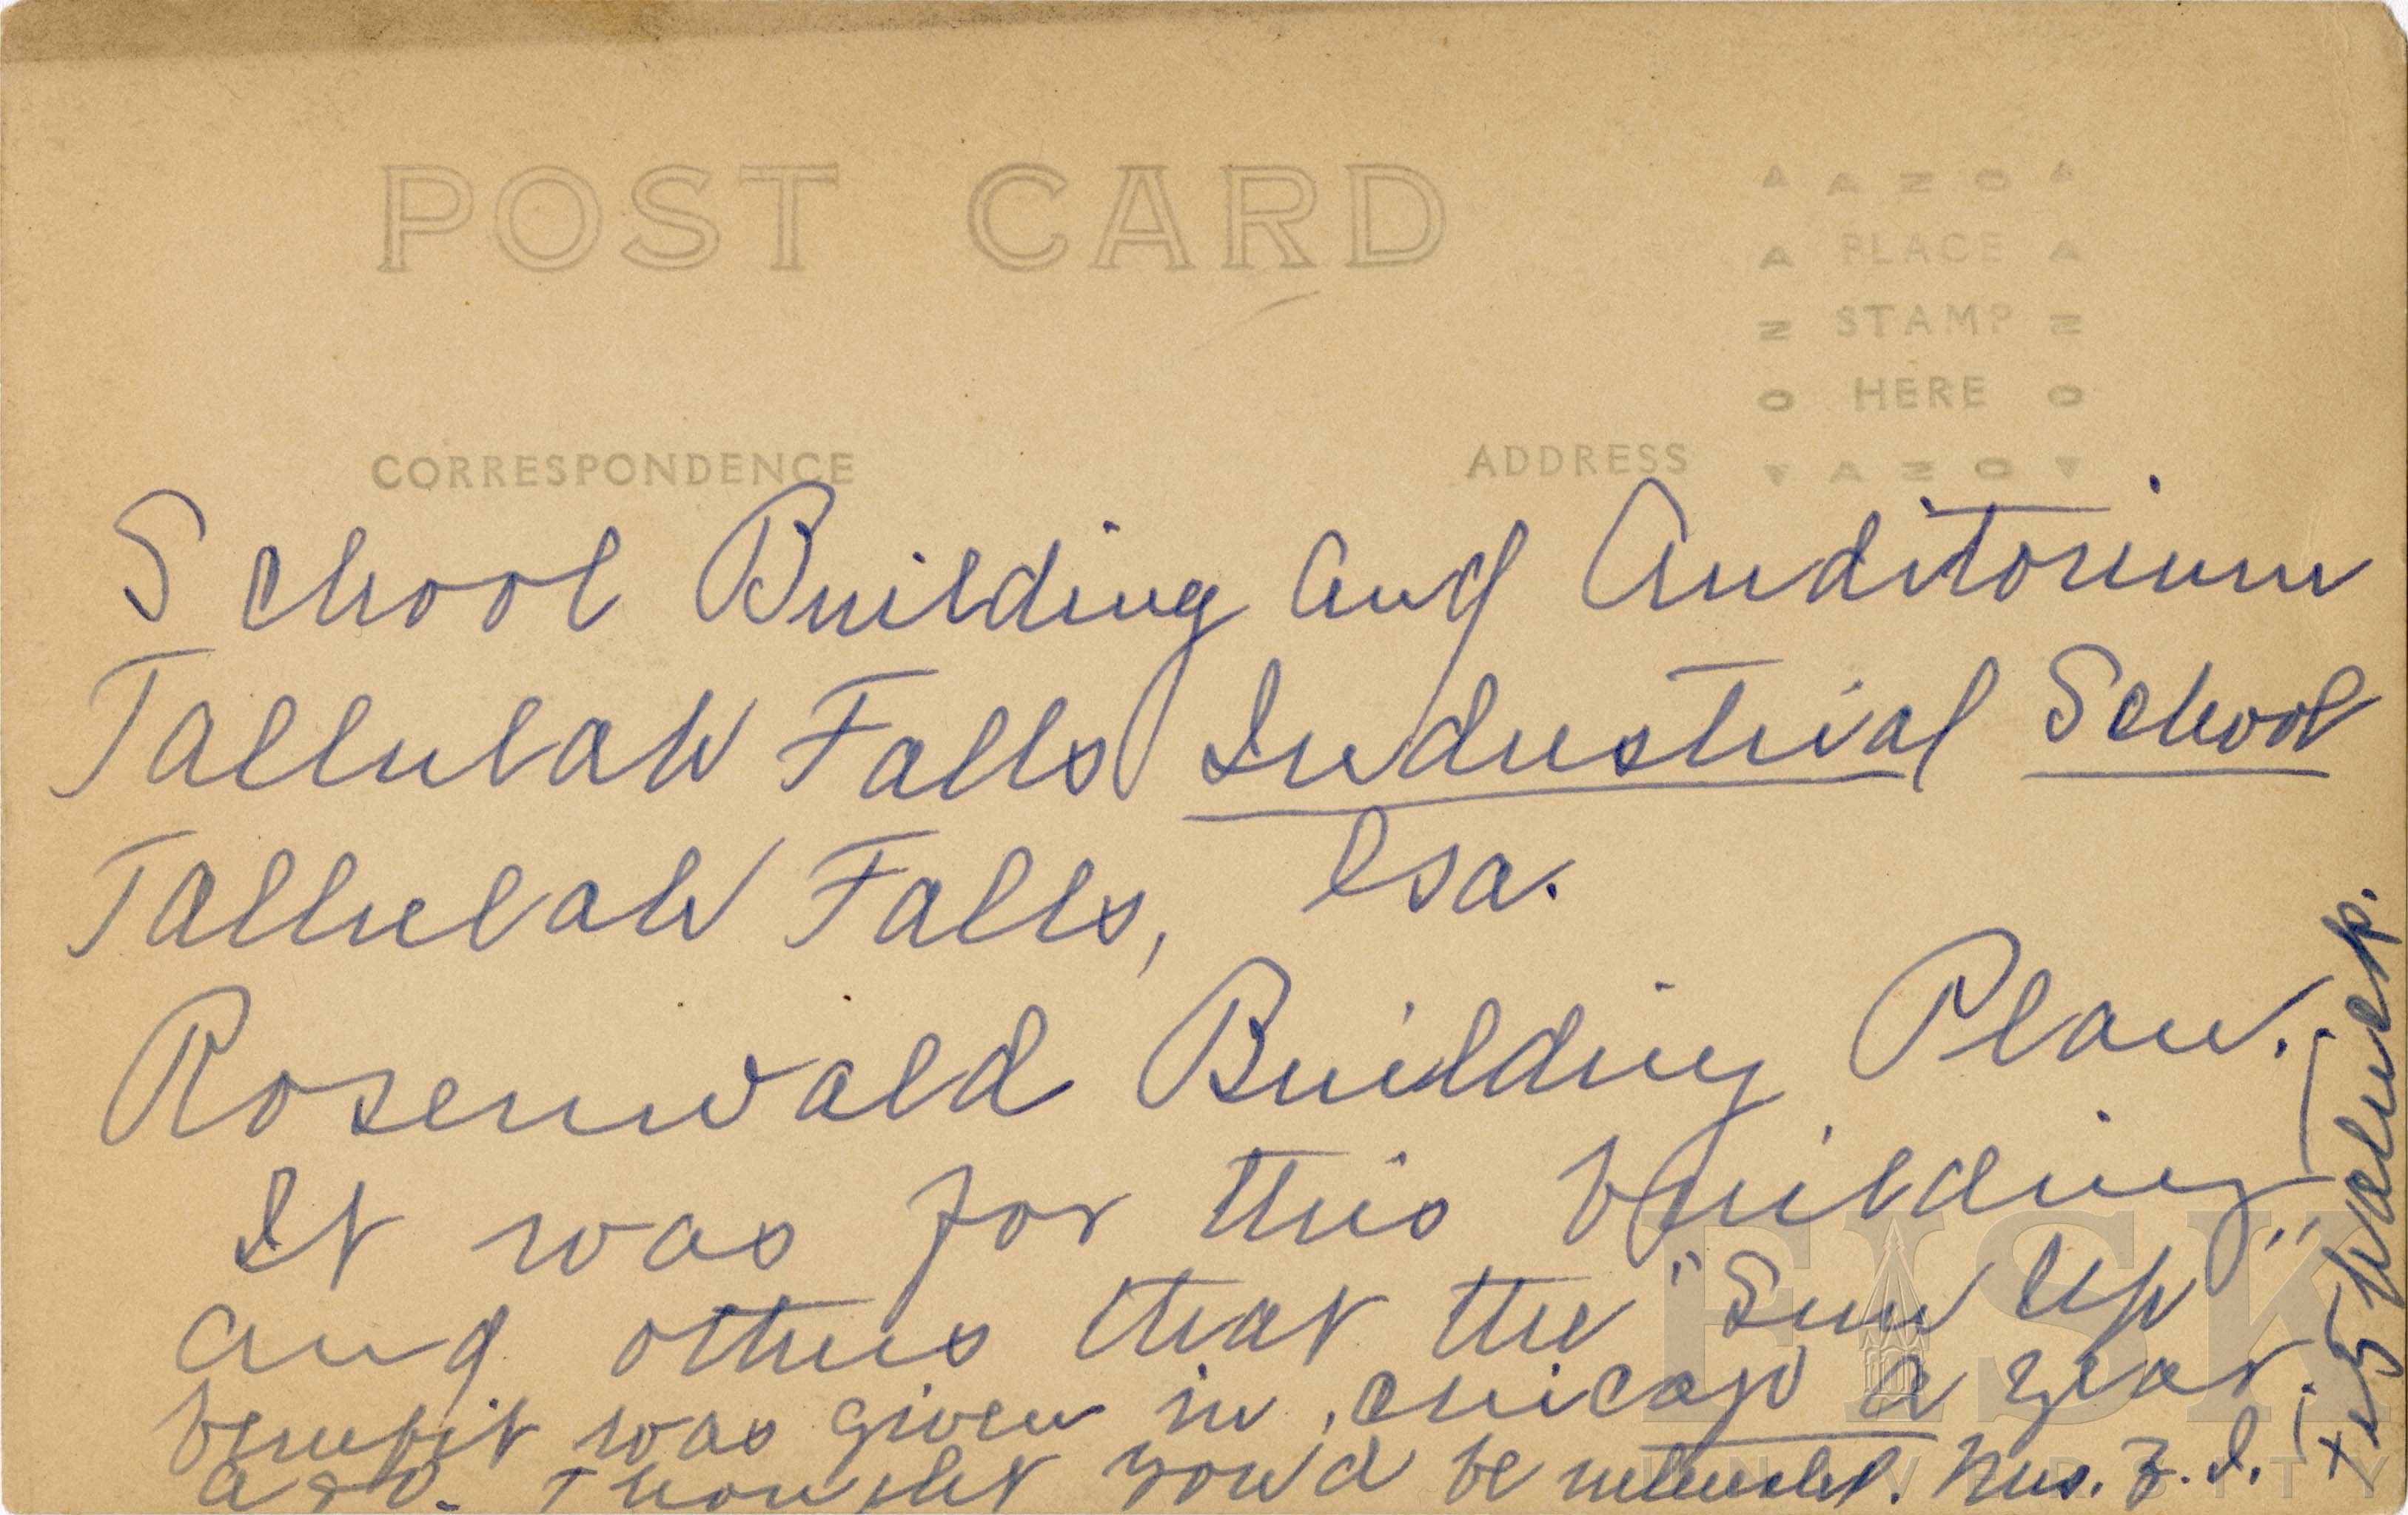 POST CARD
AZO
PLACE
STAMP
HERE
AZO
CORRESPONDENCE
ADDRESS
School Building and Auditorium
Tallulah Falls Industrial School
Tallulah Falls, Ga.
Rosenwald Building Plan.
It was for this building
and others that the "Sun Up"
benefit was given in Chicago a year
ago. Thought you'd be interested. Mrs. Z. I.
FISK
UNIVERSITY